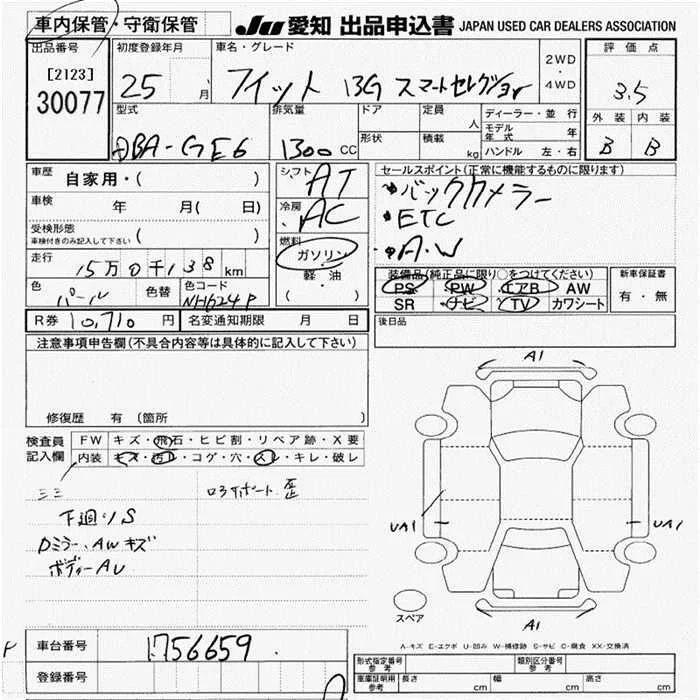 車内保管・守衛保管
JU 愛知 出品申込書 JAPAN USED CAR DEALERS ASSOCIATION
出品番号 初度登録年月 車名・グレード 2WD・4WD 評価点
[2123]
30077
25 月 フィット 13G スマートセレクション 3.5
外装 内装
B B
型式 排気量 ドア 定員 人 ディーラー・並行
DBA-GE6 1300 CC 形状 積載 kg モデル年式 年
ハンドル 左・右
車歴 自家用・( ) シフト AT セールスポイント(正常に機能するものに限ります)
車検 年 月( 日) 冷房 AC バックカメラー
受検形態 ( ) ETC
車検付きのみ記入して下さい
燃料 ガソリン A.W
走行 15万0千138km 軽・油
( )
装備品(純正品に限り○をつけてください) 新車保証書
PS PW エアB AW 有・無
SR ナビ TV カワシート
色 パール 色替 色コード NH624P
R券 10,710円 名変通知期限 月 日 後日品
注意事項申告欄(不具合内容等は具体的に記入して下さい)
修復歴 有(箇所 )
検査員記入欄 FW キズ・飛石・ヒビ割・リペア跡・X要
内装 キズ・汚レ・コゲ・穴・スレ・キレ・破レ
ロアサポート歪
下廻りS
Dミラー、AWキズ
ボディーAU
A1
UA1
UA1
A1
スペア
A-キズ E-エクボ U-凹み W-補修跡 S-サビ C-腐食 XX-交換済
車台番号 1756659
登録番号
形式指定番号 参考 類別区分番号 参考
車庫証明用 参考 長さ cm 幅 cm 高さ cm